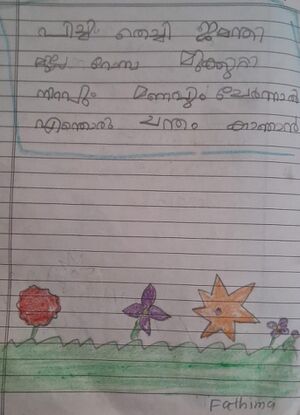 പിച്ചി തെച്ചി ജമന്തി
മുല്ല റോസ മുക്കുറ്റി
നിറവും മണവും ചേർന്നാൽ
എന്തൊരു ചന്തം കാണാൻ
Fathima